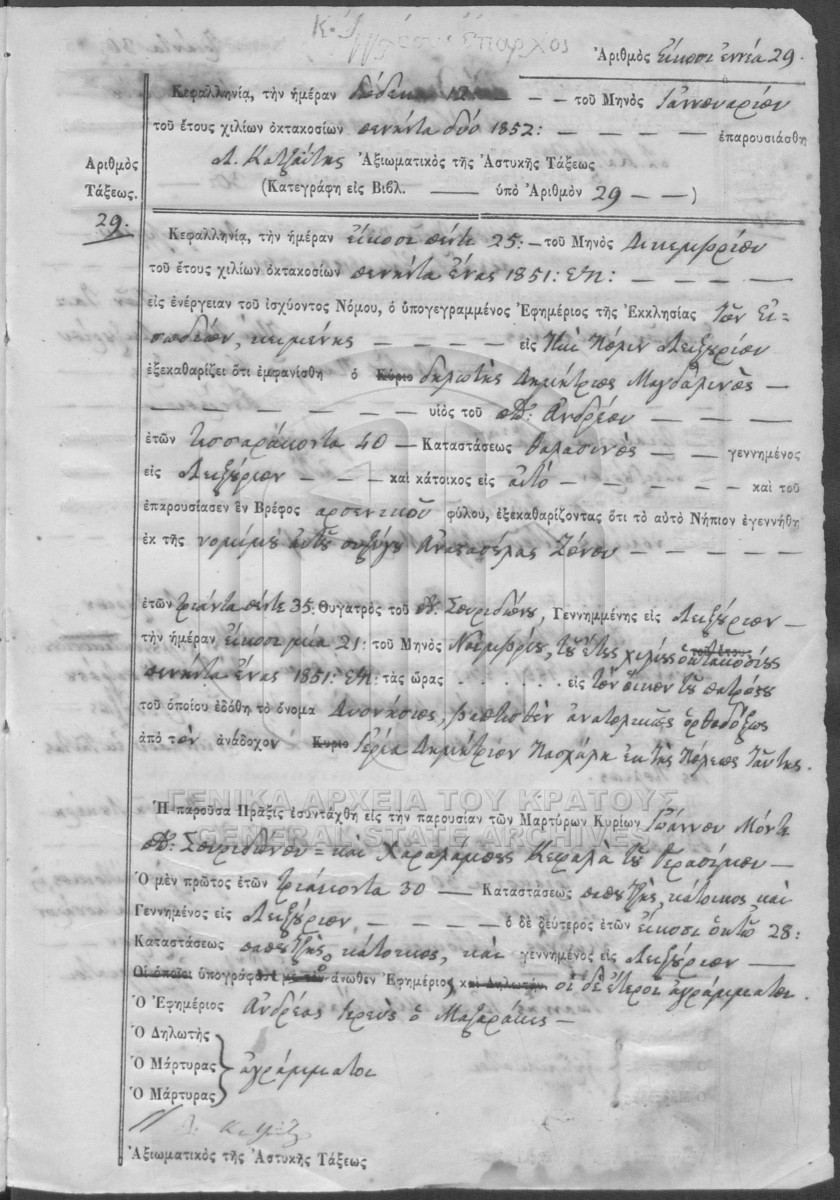 Ἀριθμὸς Εἴκοσι ἐννέα 29.
Κεφαλληνία, τὴν ἡμέραν δόδεκα 12 — — τοῦ Μηνὸς Ἰαννουαρίου
τοῦ ἔτους χιλίων ὀκτακοσίων πενήντα δύο 1852: — — — — ἐπαρουσιάσθη
Ἀριθμὸς
Τάξεως.
29:
Α. Κατζαΐτης Ἀξιωματικὸς τῆς Ἀστυκῆς Τάξεως
(Κατεγράφη εἰς Βιβλ. —— ὑπὸ Ἀριθμὸν 29 — —)
Κεφαλληνία, τὴν ἡμέραν εἴκοσι πέντε 25: — τοῦ Μηνὸς Δεκεμβρίου
τοῦ ἔτους χιλίων ὀκτακοσίων πενήντα ἕνας 1851: ΕΠ: — — — —
εἰς ἐνέργειαν τοῦ ἰσχύοντος Νόμου, ὁ ὑπογεγραμμένος Ἐφημέριος τῆς Ἐκκλησίας τῶν Εἰ=
σωδείων, κειμένης — — — — εἰς Πόλιν Ληξουρίου
ἐξεκαθαρίζει ὅτι ἐμφανίσθη ὁ Κύριο δηλωτὴς Δημήτριος Μαγδαλινὸς —
— — — — — — υἱὸς τοῦ Ἀνδρέου — — — —
ἐτῶν τεσσαράκοντα 40 — Καταστάσεως θαλασινὸς — — γεννημένος
εἰς Ληξούριον — — — καὶ κάτοικος εἰς αὐτό — — — — — καὶ τοῦ
ἐπαρουσίασεν ἓν Βρέφος ἀρσενικοῦ φύλου, ἐξεκαθαρίζοντας ὅτι τὸ αὐτὸ Νήπιον ἐγεννήθη
ἐκ τῆς νομίμου αὐτοῦ συζύγου Ζένου — — — — —
ἐτῶν τριάντα πέντε 35: Θυγατρὸς τοῦ Σπυριδῶνος, Γεννημμένης εἰς Ληξούριον —
τὴν ἡμέραν εἴκοσι μία 21: τοῦ Μηνὸς Νοεμβρίου, τοῦ ἔτους χιλίους ὀκτακοσίους τοῦ ἔτους
πενήντα ἕνας 1851: ΕΠ: τὰς ὥρας . . . . . . εἰς τὸν οἶκον τοῦ πατρός του
τοῦ ὁποίου ἐδόθη τὸ ὄνομα Διονήσιος, βαπτισθὲν ἀνατολικῶς ὀρθοδόξως
ἀπὸ τὸν ἀνάδοχον Κύριο Ἱερέα Δημήτριον Πασχάλη ἐκ τῆς Πόλεως Ταύτης.
ΓΕΝΙΚΑ ΑΡΧΕΙΑ ΤΟΥ ΚΡΑΤΟΥΣ
GENERAL STATE ARCHIVES
Ἡ παροῦσα Πρᾶξις ἐσυντάχθη εἰς τὴν παρουσίαν τῶν Μαρτύρων Κυρίων Ἰωάννου Μόντε
Σπυριδῶνος = καὶ Χαραλάμπους Κεφαλᾶ τοῦ Γερασίμου —
Ὁ μὲν πρῶτος ἐτῶν τριάκοντα 30 — Καταστάσεως παπουτζῆς, κάτοικος καὶ
Γεννημένος εἰς Ληξούριον — — — — — ὁ δὲ δεύτερος ἐτῶν εἴκοσι ὀκτὼ 28:
Καταστάσεως παπουτζῆς, κάτοικος, καὶ γεννημένος εἰς Ληξούριον —
Οἱ ὁποῖοι ὑπογράφ με τὸ ἄνωθεν Ἐφημέριος καὶ Δηλωτὴν οἱ δὲ ἕτεροι ἀγράμματοι.
Ὁ Ἐφημέριος Ἀνδρέας ἱερεὺς ὁ Μαζαράκης —
Ὁ Δηλωτὴς
Ὁ Μάρτυρας ἀγράμματοι
Ὁ Μάρτυρας
Ἀξιωματικὸς τῆς Ἀστυκῆς Τάξεως